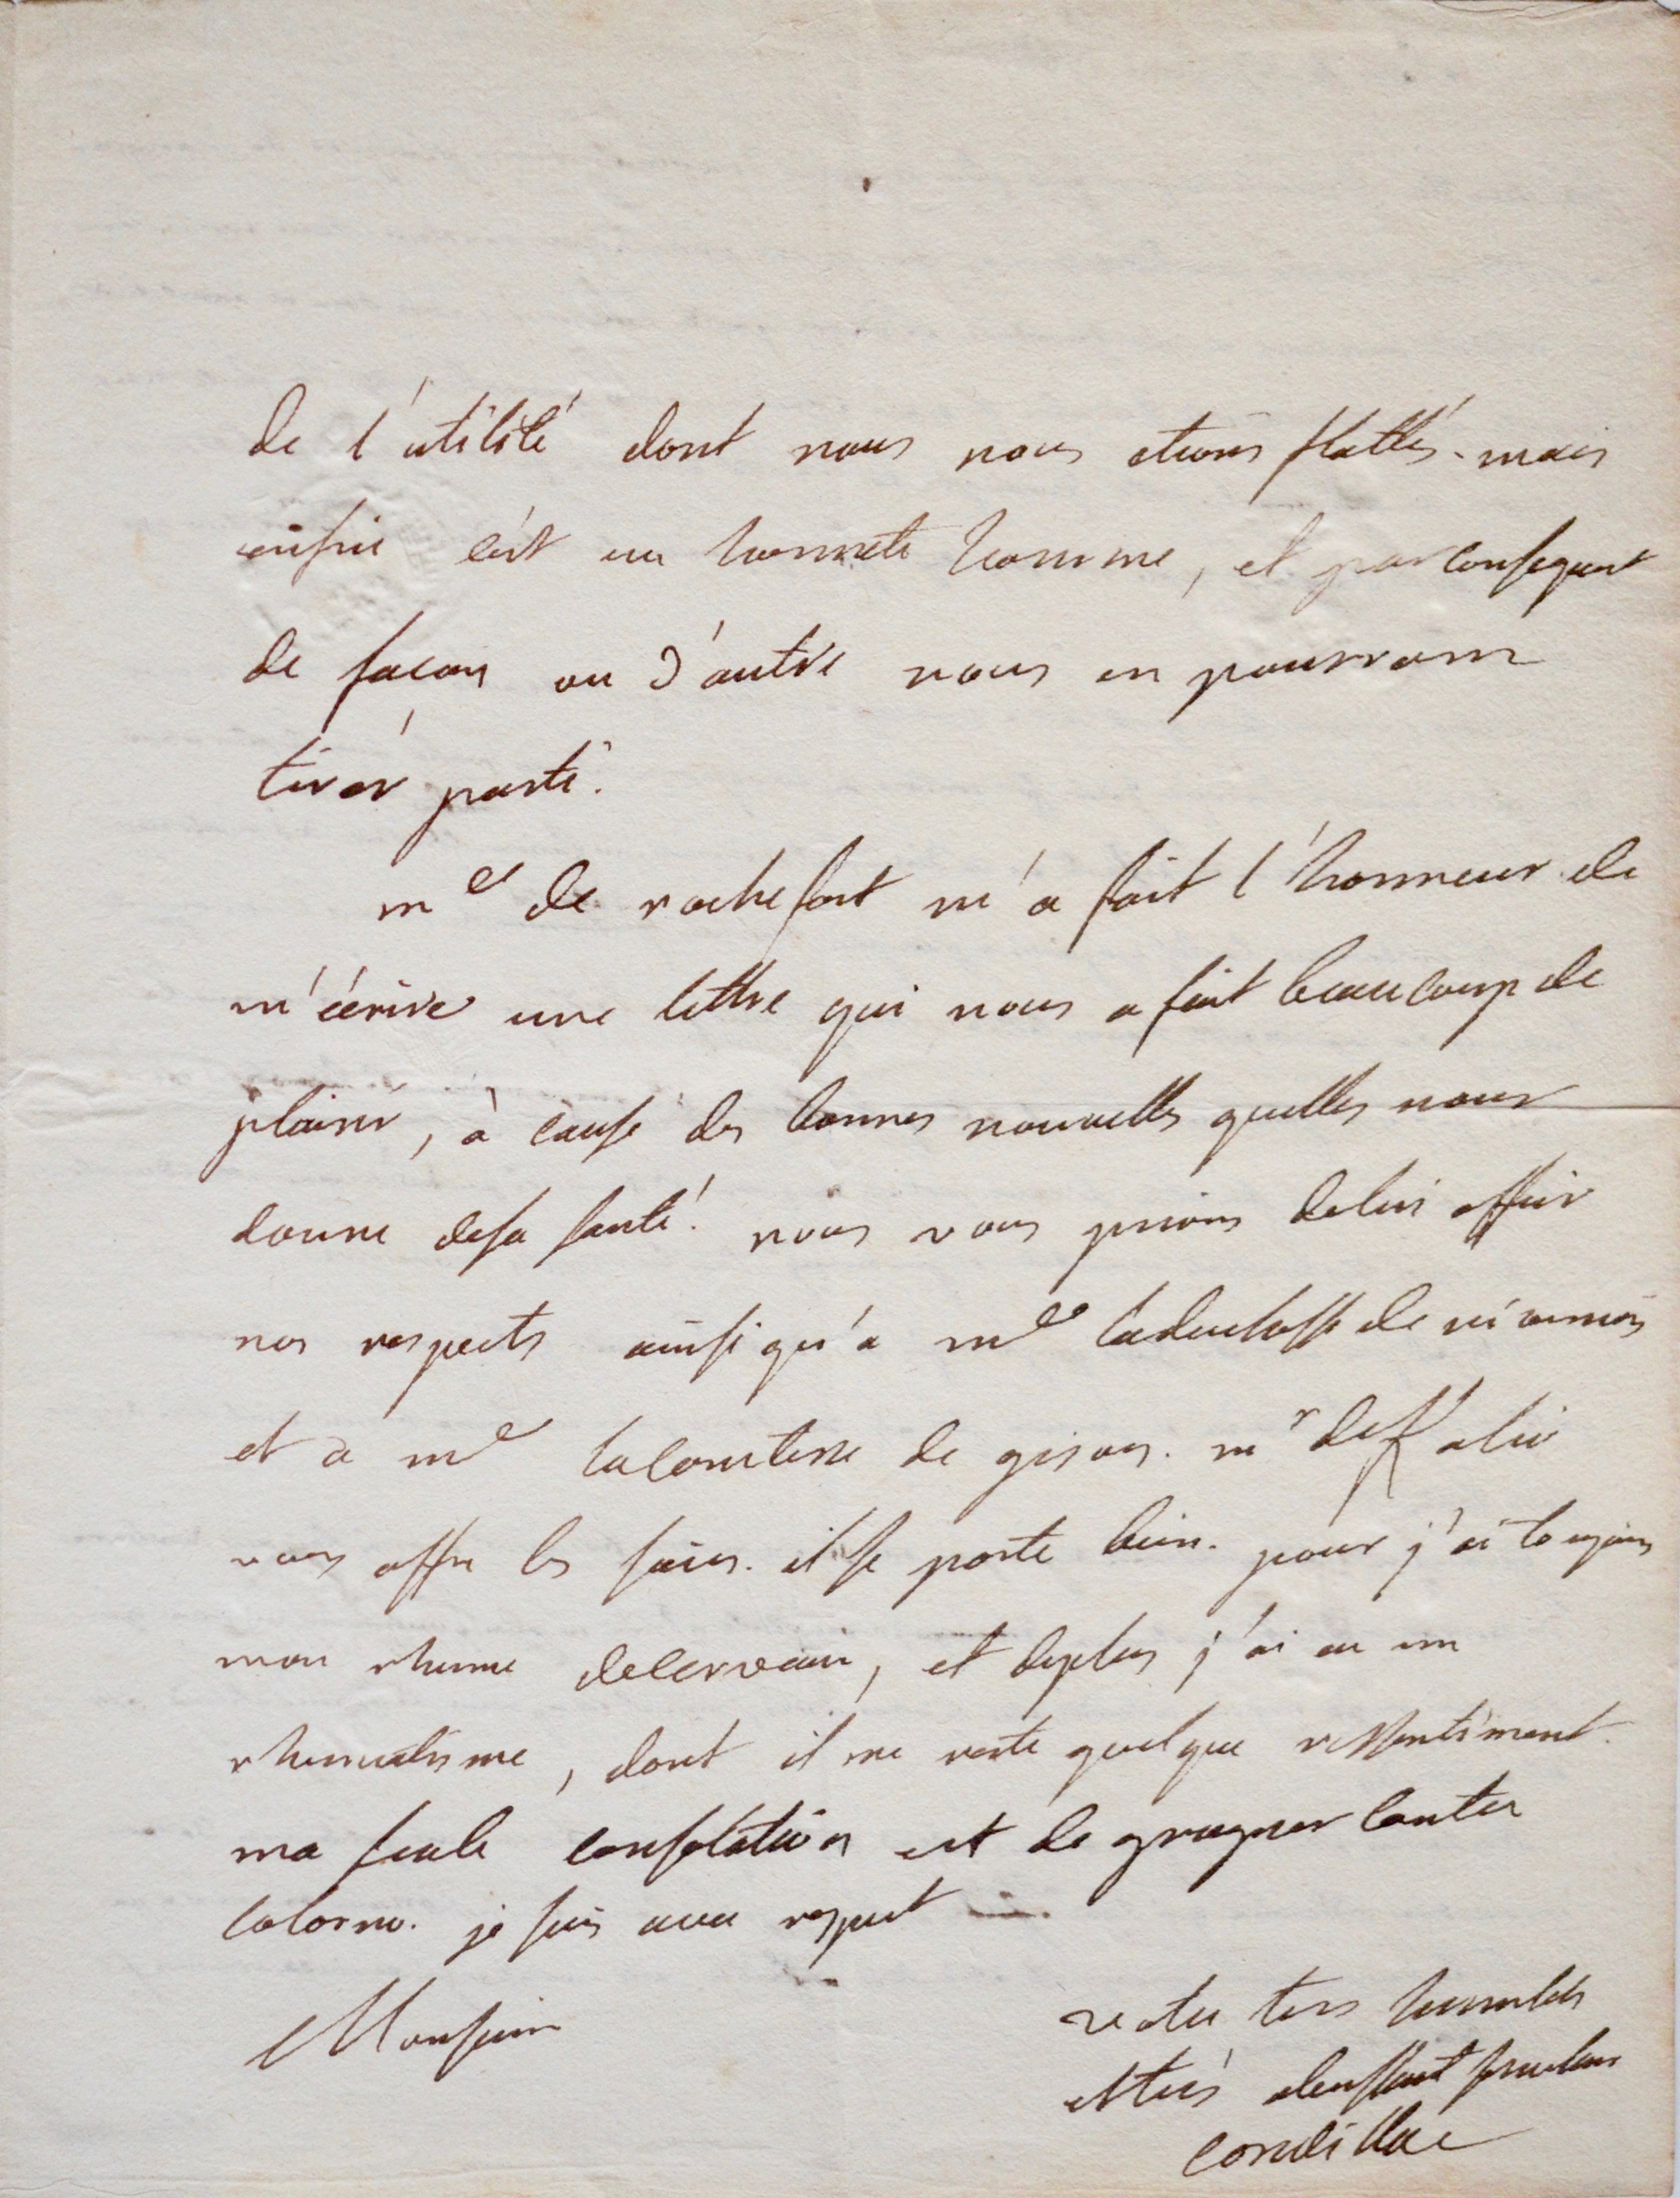 de l'utilité dont nous nous etions flattés. mais
enfin c'est un honnete homme, et par consequent
de façon ou d'autre nous en pourrons
tirer parti.
me de rochefort m'a fait l'honneur de
m'écrire une lettre qui nous a fait beaucoup de
plaisir, à cause des bonnes nouvelles quelles nous
donne de sa santé. nous vous prions de lui offrir
nos respects ainsi qu'a me la duchesse de nivernois
et a me la comtesse de gisors. mr de
vous offre les siens. il se porte bien. pour j'ai toujours
mon rhume de cerveau, et de plus j'ai eu un
rhumatisme, dont il me reste quelque ressentiment.
ma seule consolation est de grogner contre
colorno. je suis avec respect
Monsieur
votre tres humble
et très obeissant serviteur
condillac